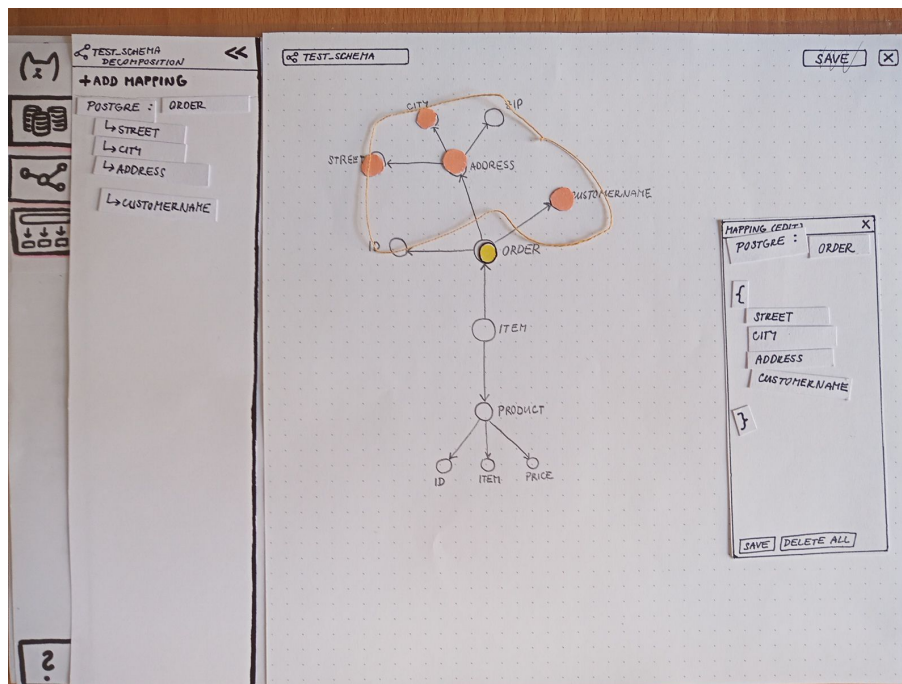 TEST_SCHEMA
DECOMPOSITION
<<
+ADD MAPPING
POSTGRE : ORDER
↳STREET
↳CITY
↳ADDRESS
↳CUSTOMERNAME
?
TEST_SCHEMA
SAVE
X
CITY
ZIP
STREET
ADDRESS
CUSTOMERNAME
ID
ORDER
ITEM
PRODUCT
ID
ITEM
PRICE
MAPPING (EDIT) X
POSTGRE : ORDER
{
STREET
CITY
ADDRESS
CUSTOMERNAME
}
SAVE DELETE ALL